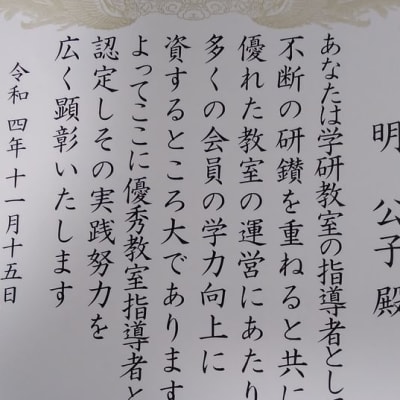 明 公子 殿
あなたは学研教室の指導者とし
不断の研鑽を重ねると共に
優れた教室の運営にあたり
多くの会員の学力向上に
資するところ大であります
よってここに優秀教室指導者と
認定しその実践努力を
広く顕彰いたします
令和四年十一月十五日